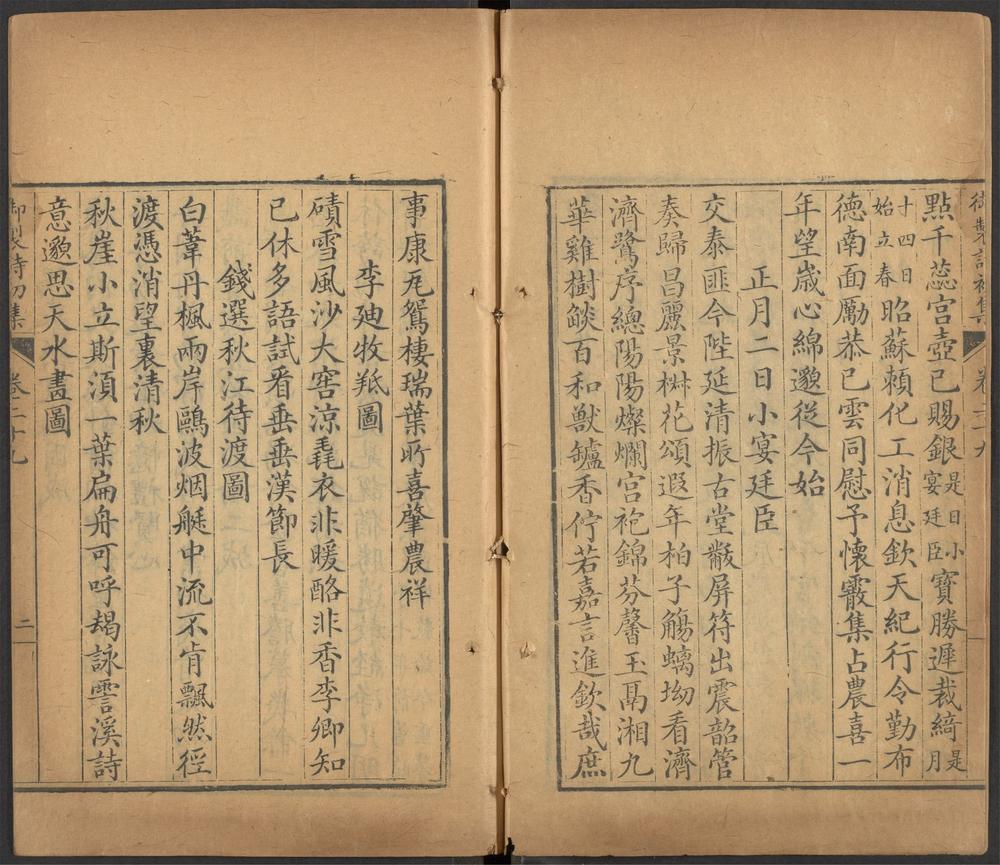 御製詩初集 卷二十九 一
點千蕊宮壺已賜銀是日小宴廷臣寶勝遲裁綺是月
十四日始立春昭蘇賴化工消息欽天紀行令勤布
德南面勵恭己雲同慰予懷霰集占農喜一
年望歲心綿邈從今始
正月二日小宴廷臣
交泰匪今陛延清振古堂黻屏符出震韶管
奏歸昌麗景椒花頌遐年柏子觴螭坳看濟
濟鷺序總陽陽燦爛宮袍錦芬馨玉鬲湘九
華雞樹燄百和獸鑪香佇若嘉言進欽哉庶
事康尨鴛棲瑞葉所喜肇農祥
李廸牧羝圖
磧雪風沙大窖涼毳衣非暖酪非香李卿知
已休多語試看垂垂漢節長
錢選秋江待渡圖
白葦丹楓兩岸鷗波烟艇中流不肯飄然徑
渡憑消望裏清秋
秋崖小立斯須一葉扁舟可呼朅詠霅溪詩
意邈思天水畫圖
御製詩初集 卷二十九 二